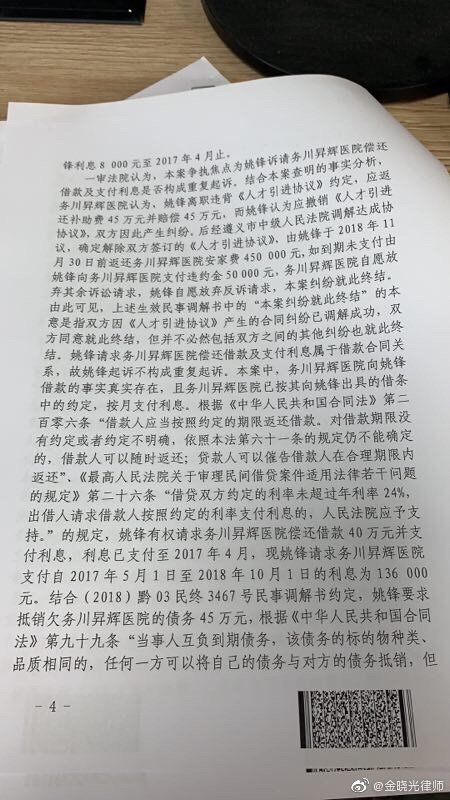 锋利息 8 000元至 2017 年 4 月止。
一审法院认为，本案争执焦点为姚锋诉请务川昇辉医院偿还
借款及支付利息是否构成重复起诉。结合本案查明的事实分析，
务川昇辉医院认为，姚锋离职违背《人才引进协议》约定，应返
还补助费 45 万元并赔偿 45 万元，而姚锋认为应撤销《人才引进
协议》，双方因此产生纠纷。后经遵义市中级人民法院调解达成协
议，确定解除双方签订的《人才引进协议》，由姚锋于 2018 年 11
月 30 日前返还务川昇辉医院安家费 450 000 元，如到期未支付由
姚锋向务川昇辉医院支付违约金 50 000 元，务川昇辉医院自愿放
弃其余诉讼请求，姚锋自愿放弃反诉请求，本案纠纷就此终结。
由此可见，上述生效民事调解书中的“本案纠纷就此终结”的本
意是指双方因《人才引进协议》产生的合同纠纷已调解成功，双
方同意就此终结，但并不必然包括双方之间的其他纠纷也就此终
结。姚锋请求务川昇辉医院偿还借款及支付利息属于借款合同关
系，故姚锋起诉不构成重复起诉。本案中，务川昇辉医院向姚锋
借款的事实真实存在，且务川昇辉医院已按其向姚锋出具的借条
中的约定，按月支付利息。根据《中华人民共和国合同法》第二
百零六条“借款人应当按照约定的期限返还借款。对借款期限没
有约定或者约定不明确，依照本法第六十一条的规定仍不能确定
的，借款人可以随时返还；贷款人可以催告借款人在合理期限内
返还”、《最高人民法院关于审理民间借贷案件适用法律若干问题
的规定》第二十六条“借贷双方约定的利率未超过年利率 24%，
出借人请求借款人按照约定的利率支付利息的，人民法院应予支
持。”的规定，姚锋有权请求务川昇辉医院偿还借款 40 万元并支
付利息，利息已支付至 2017 年 4 月，现姚锋请求务川昇辉医院
支付自 2017 年 5 月 1 日至 2018 年 10 月 1 日的利息为 136 000
元。结合（2018）黔 03 民终 3467 号民事调解书约定，姚锋要求
抵销欠务川昇辉医院的债务 45 万元，根据《中华人民共和国合同
法》第九十九条“当事人互负到期债务，该债务的标的物种类、
品质相同的，任何一方可以将自己的债务与对方的债务抵销，但
- 4 -
@金晓光律师